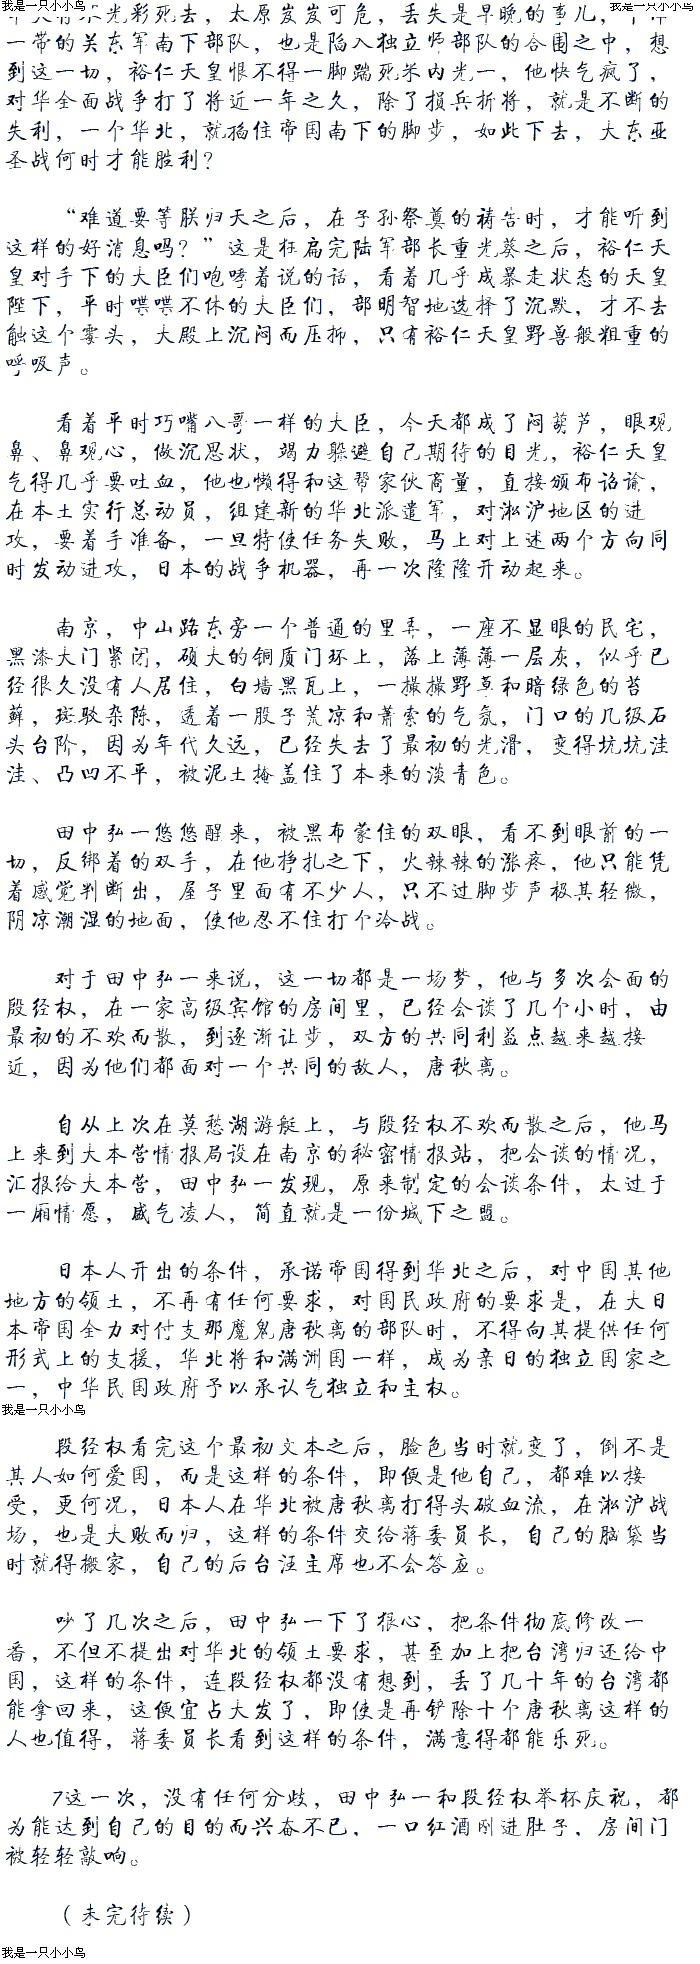 我是一只小小鸟 我是一只小小鸟
光彩死去，太原岌岌可危，丢失是早晚的事儿，
一带的关东军南下部队，也是陷入独立师部队的合围之中，想
到这一切，裕仁天皇恨不得一脚踹死米内光一，他快气疯了，
对华全面战争打了将近一年之久，除了损兵折将，就是不断的
失利，一个华北，就掐住帝国南下的脚步，如此下去，大东亚
圣战何时才能胜利？
“难道要等朕归天之后，在子孙祭奠的祷告时，才能听到
这样的好消息吗？”这是狂扁完陆军部长重光葵之后，裕仁天
皇对手下的大臣们咆哮着说的话，看着几乎成暴走状态的天皇
陛下，平时喋喋不休的大臣们，都明智地选择了沉默，才不去
触这个霉头，大殿上沉闷而压抑，只有裕仁天皇野兽般粗重的
呼吸声。
看着平时巧嘴八哥一样的大臣，今天都成了闷葫芦，眼观
鼻、鼻观心，做沉思状，竭力躲避自己期待的目光，裕仁天皇
气得几乎要吐血，他也懒得和这帮家伙商量，直接颁布诏谕，
在本土实行总动员，组建新的华北派遣军，对淞沪地区的进
攻，要着手准备，一旦特使任务失败，马上对上述两个方向同
时发动进攻，日本的战争机器，再一次隆隆开动起来。
南京，中山路东旁一个普通的里弄，一座不显眼的民宅，
黑漆大门紧闭，硕大的铜质门环上，落上薄薄一层灰，似乎已
经很久没有人居住，白墙黑瓦上，一撮撮野草和暗绿色的苔
藓，斑驳杂陈，透着一股子荒凉和萧索的气氛，门口的几级石
头台阶，因为年代久远，已经失去了最初的光滑，变得坑坑洼
洼、凸凹不平，被泥土掩盖住了本来的淡青色。
田中弘一悠悠醒来，被黑布蒙住的双眼，看不到眼前的一
切，反绑着的双手，在他挣扎之下，火辣辣的涨疼，他只能凭
着感觉判断出，屋子里面有不少人，只不过脚步声极其轻微，
阴凉潮湿的地面，使他忍不住打个冷战。
对于田中弘一来说，这一切都是一场梦，他与多次会面的
段经权，在一家高级宾馆的房间里，已经会谈了几个小时，由
最初的不欢而散，到逐渐让步，双方的共同利益点越来越接
近，因为他们都面对一个共同的敌人，唐秋离。
自从上次在莫愁湖游艇上，与段经权不欢而散之后，他马
上来到大本营情报局设在南京的秘密情报站，把会谈的情况，
汇报给大本营，田中弘一发现，原来制定的会谈条件，太过于
一厢情愿，盛气凌人，简直就是一份城下之盟。
日本人开出的条件，承诺帝国得到华北之后，对中国其他
地方的领土，不再有任何要求，对国民政府的要求是，在大日
本帝国全力对付支那魔鬼唐秋离的部队时，不得向其提供任何
形式上的支援，华北将和满洲国一样，成为亲日的独立国家之
一，中华民国政府予以承认气独立和主权。
我是一只小小鸟
段经权看完这个最初文本之后，脸色当时就变了，倒不是
其人如何爱国，而是这样的条件，即便是他自己，都难以接
受，更何况，日本人在华北被唐秋离打得头破血流，在淞沪战
场，也是大败而归，这样的条件交给蒋委员长，自己的脑袋当
时就得搬家，自己的后台汪主席也不会答应。
吵了几次之后，田中弘一下了狠心，把条件彻底修改一
番，不但不提出对华北的领土要求，甚至加上把台湾归还给中
国，这样的条件，连段经权都没有想到，丢了几十年的台湾都
能拿回来，这便宜占大发了，即使是再铲除十个唐秋离这样的
人也值得，蒋委员长看到这样的条件，满意得都能乐死。
7这一次，没有任何分歧，田中弘一和段经权举杯庆祝，都
为能达到自己的目的而兴奋不已，一口红酒刚进肚子，房间门
被轻轻敲响。
（未完待续）
我是一只小小鸟